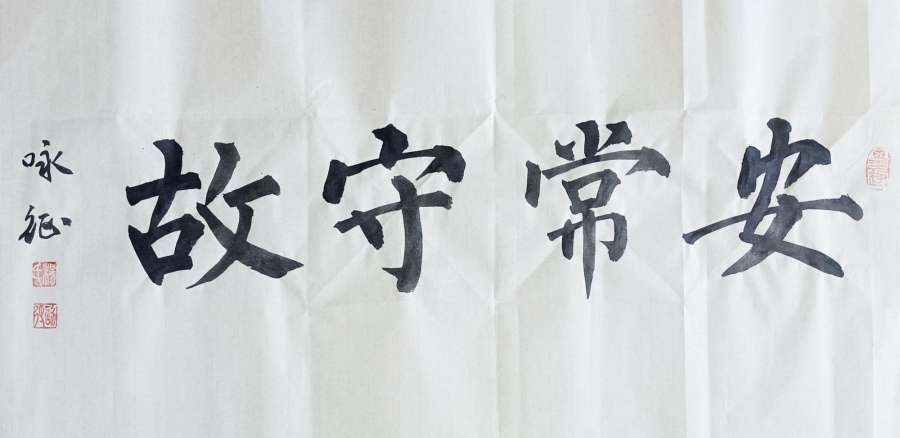 安常守故
咏征